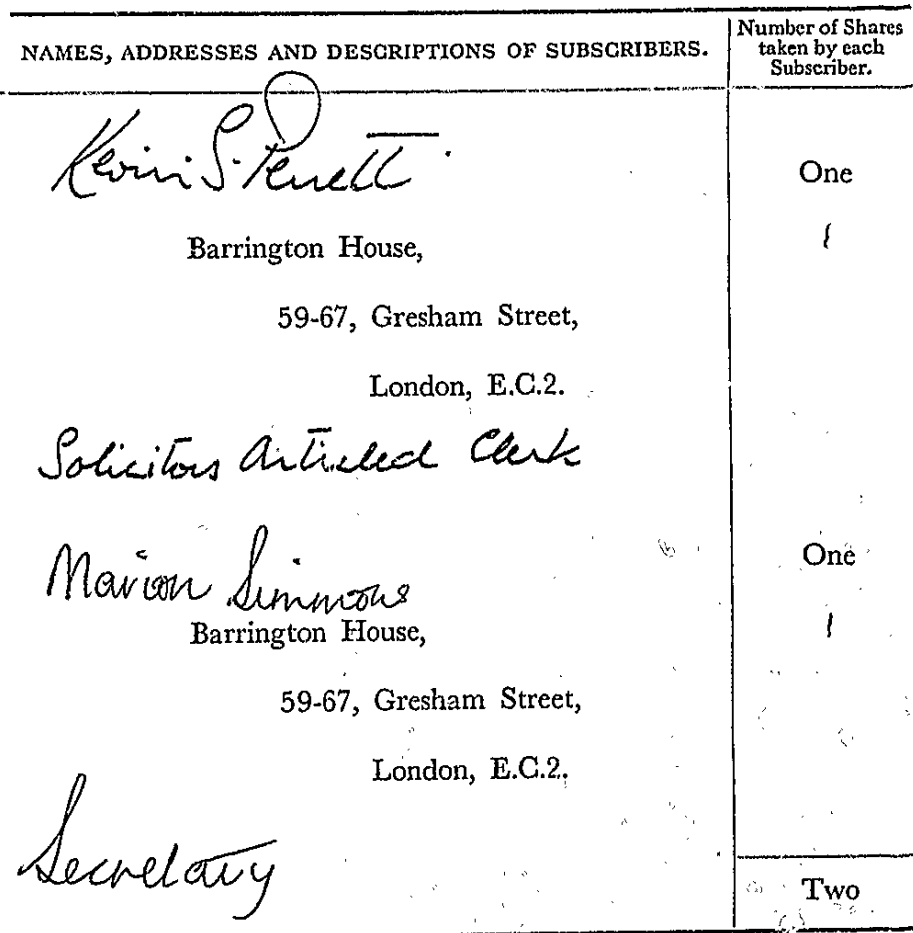 NAMES, ADDRESSES AND DESCRIPTIONS OF SUBSCRIBERS.
Number of Shares
taken by each
Subscriber.
Kevin S.
One
1
Barrington House,
59-67, Gresham Street,
London, E.C.2.
Solicitors Articled Clerk
Marion Simmons
One
1
Barrington House,
59-67, Gresham Street,
London, E.C.2.
Secretary
Two